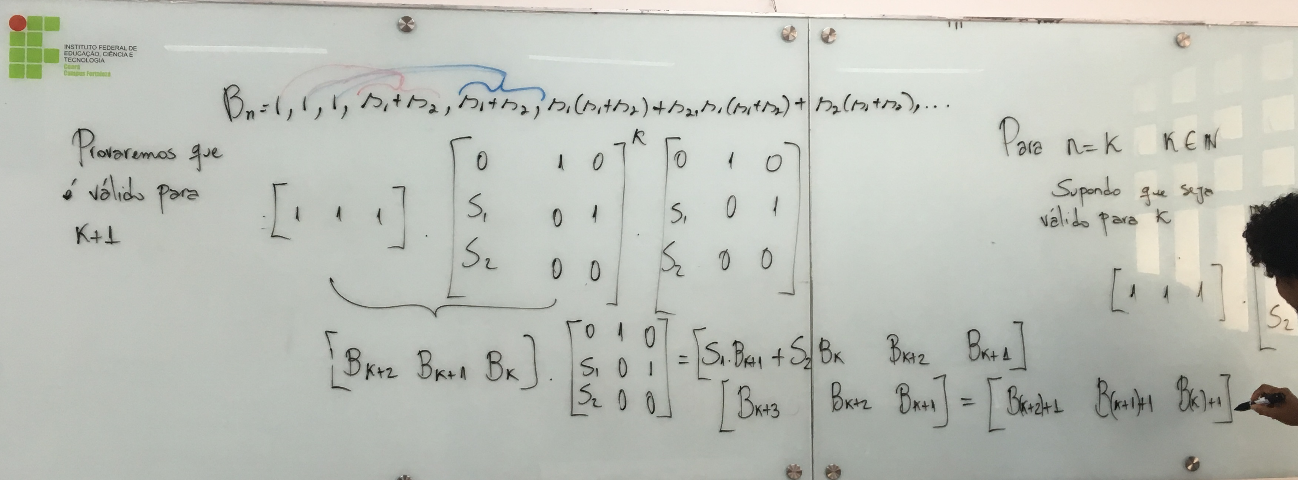 INSTITUTO FEDERAL DE
EDUCAÇÃO, CIÊNCIA E
TECNOLOGIA
Ceará
Campus Fortaleza
Bₙ = 1, 1, 1, s₁+s₂, s₁+s₂, s₁(s₁+s₂)+s₂, s₁(s₁+s₂)+s₂(s₁+s₂), ...
Provaremos que
é válido para
K+1
[1 1 1] · [0 1 0; S₁ 0 1; S₂ 0 0]^K · [0 1 0; S₁ 0 1; S₂ 0 0]
[B_{K+2} B_{K+1} B_K] · [0 1 0; S₁ 0 1; S₂ 0 0] = [S₁·B_{K+1} + S₂ B_K B_{K+2} B_{K+1}]
[B_{K+3} B_{K+2} B_{K+1}] = [B_{(K+2)+1} B_{(K+1)+1} B_{(K)+1}]
Para n=K K∈ℕ
Supondo que seja
válido para K
[1 1 1] · [
S₂